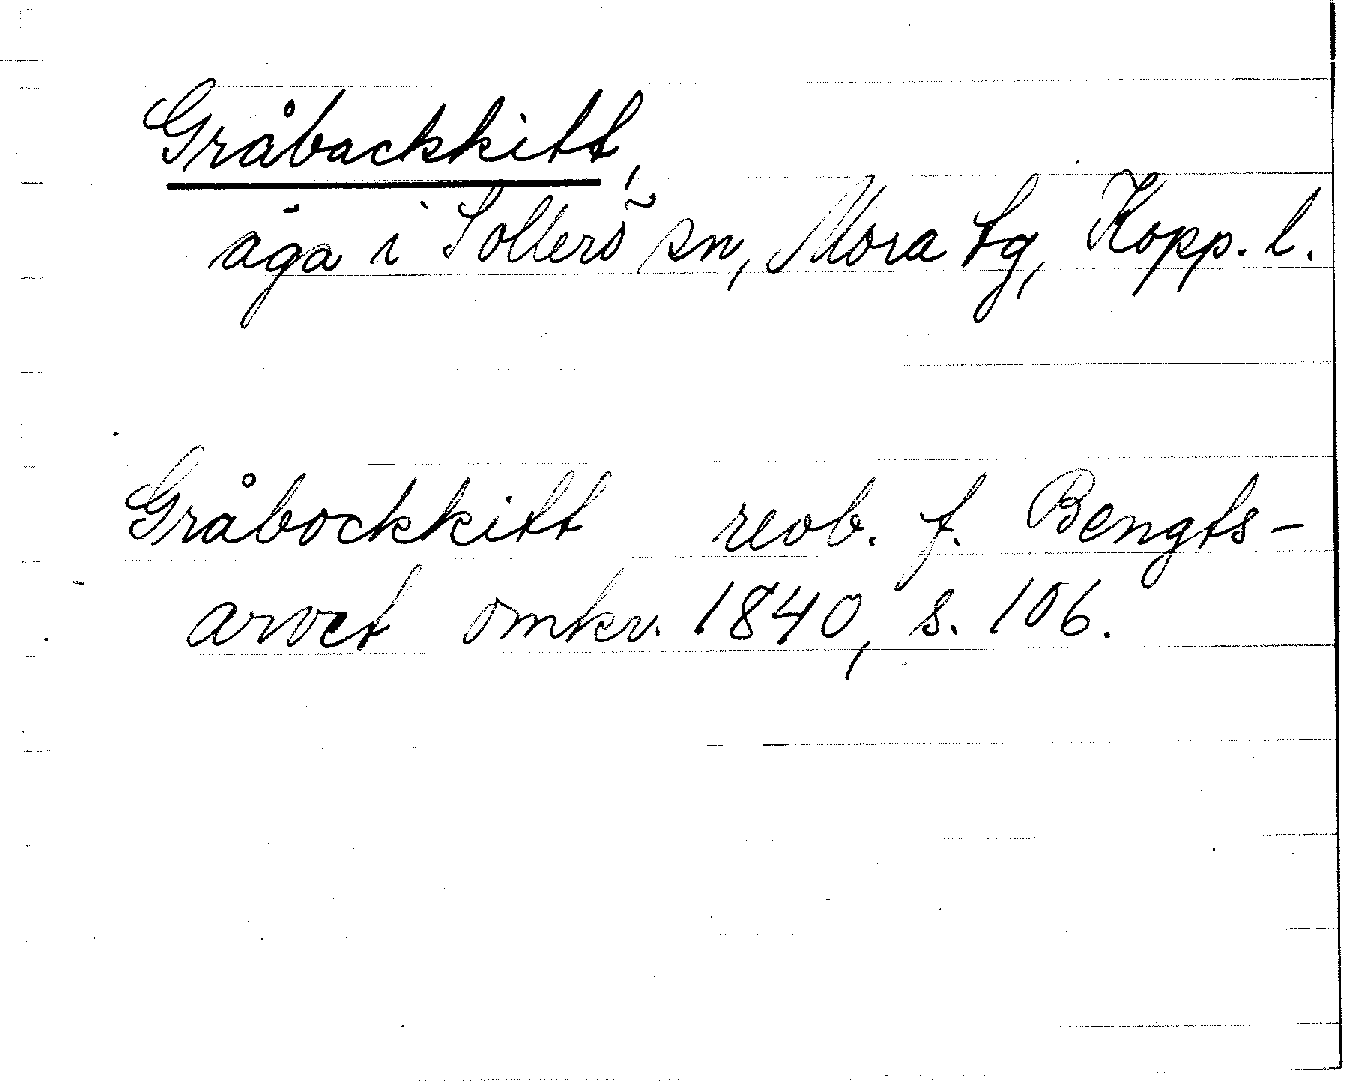 Gråbackkitt,
äga i Sollerö sn, Mora tg, Kopp. l.
Gråbockkitt reob. f. Bengts-
arvet omkr. 1840, s. 106.